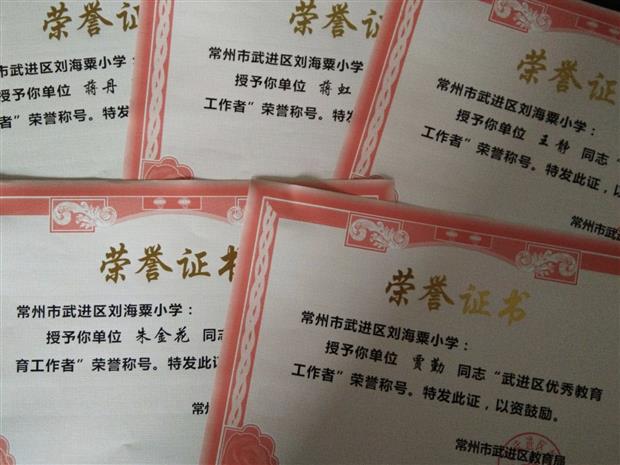 荣誉证
常州市武进区刘海粟小学：
授予你单位 蒋丹
工作者”荣誉称号。特发
荣誉证
常州市武进区刘海粟小学
授予你单位 蒋虹
工作者”荣誉称号。特发
荣誉证
常州市武进区刘海粟小学：
授予你单位 王静 同志“
工作者”荣誉称号。特发此证，以
常州市武
荣誉证书
常州市武进区刘海粟小学：
授予你单位 朱金花 同志
育工作者”荣誉称号。特发此证
常州
荣誉证书
常州市武进区刘海粟小学：
授予你单位 贾勤 同志“武进区优秀教育
工作者”荣誉称号。特发此证，以资鼓励。
常州市武进区教育局